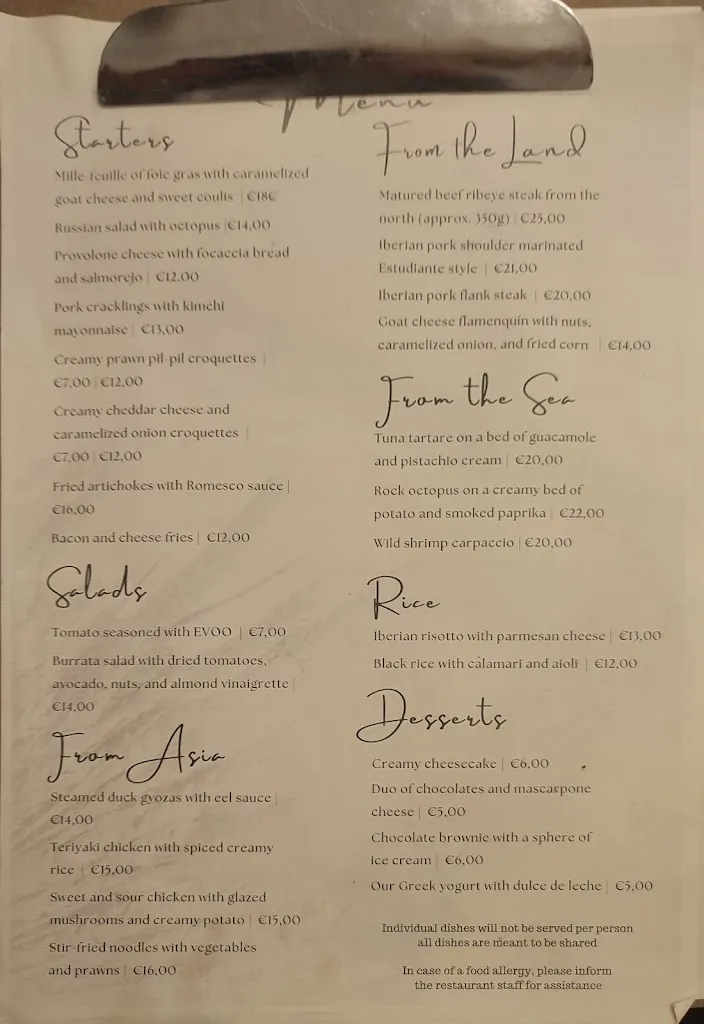 Menu
Starters
Mille-feuille of foie gras with caramelized
goat cheese and sweet coulis | €18€
Russian salad with octopus |€14,00
Provolone cheese with focaccia bread
and salmorejo | €12,00
Pork cracklings with kimchi
mayonnaise | €13,00
Creamy prawn pil-pil croquettes |
€7,00 |€12,00
Creamy cheddar cheese and
caramelized onion croquettes |
€7,00 |€12,00
Fried artichokes with Romesco sauce |
€16,00
Bacon and cheese fries | €12,00
Salads
Tomato seasoned with EVOO | €7,00
Burrata salad with dried tomatoes,
avocado, nuts, and almond vinaigrette |
€14,00
From Asia
Steamed duck gyozas with eel sauce |
€14,00
Teriyaki chicken with spiced creamy
rice | €15,00
Sweet and sour chicken with glazed
mushrooms and creamy potato | €15,00
Stir-fried noodles with vegetables
and prawns | €16,00
From the Land
Matured beef ribeye steak from the
north (approx. 350g) | €25,00
Iberian pork shoulder marinated
Estudiante style | €21,00
Iberian pork flank steak | €20,00
Goat cheese flamenquín with nuts,
caramelized onion, and fried corn | €14,00
From the Sea
Tuna tartare on a bed of guacamole
and pistachio cream | €20,00
Rock octopus on a creamy bed of
potato and smoked paprika | €22,00
Wild shrimp carpaccio | €20,00
Rice
Iberian risotto with parmesan cheese | €13,00
Black rice with calamari and aioli | €12,00
Desserts
Creamy cheesecake | €6,00
Duo of chocolates and mascarpone
cheese | €5,00
Chocolate brownie with a sphere of
ice cream | €6,00
Our Greek yogurt with dulce de leche | €5,00
Individual dishes will not be served per person
all dishes are meant to be shared
In case of a food allergy, please inform
the restaurant staff for assistance